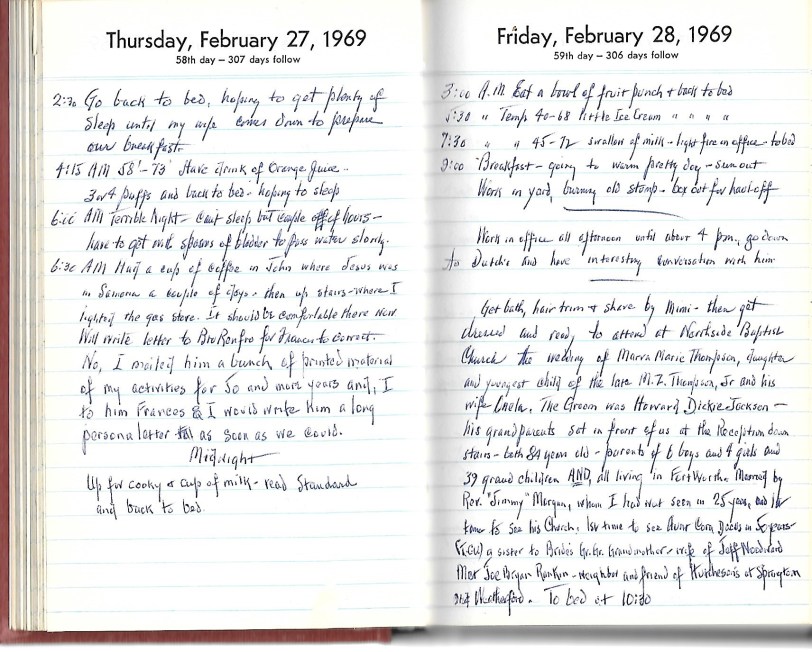 Thursday, February 27, 1969
58th day – 307 days follow
2:30 Go back to bed, hoping to get plenty of
sleep until my wife comes down to prepare
our breakfast.
4:15 AM 58'-73' Have drink of Orange Juice -
3 or 4 puffs and back to bed - hoping to sleep
AM Terrible Night - Can't sleep but couple of hours -
have to get with spasms of bladder to pass water slowly.
6:30 AM Had a cup of coffee in John where Jesus was
in Samaria a couple of days - then up stairs - where I
lighted the gas stove. It should be comfortable there now
Will write letter to Bro Renfro for Frances to correct.
No, I mailed him a bunch of printed material
of my activities for 50 and more years and, I
to him Frances & I would write him a long
personal letter as soon as we could.
Midnight
Up for cooky & cup of milk - read Standard
and back to bed.
Friday, February 28, 1969
59th day – 306 days follow
3:00 A.M Eat a bowl of fruit punch & back to bed
5:30 " Temp 40-68 little Ice Cream " " " "
7:30 " " 45-72 swallow of milk - light fire in office - to bed
9:00 Breakfast - going to warm pretty day - sun out
Work in yard, burning old stump - box out for haul off
Work in office all afternoon until about 4 pm., go down
to Dutch's and have interesting conversation with him
Get bath, hair trim & shave by Mimi - then get
dressed and ready to attend at Northside Baptist
Church the wedding of Marra Marie Thompson, daughter
and youngest child of the late M.Z. Thompson, Jr and his
wife The Groom was Howard Dickie Jackson -
his grandparents sat in front of us at the Reception down
stairs - both 84 years old - parents of 6 boys and 4 girls and
39 grand children AND, all living in Fort Worth. Married by
Rev. "Jimmy" Morgan, whom I had not seen in 25 years, and 1st
time to see his Church. 1st time to see Aunt Cora in 50 years
(TCU) a sister to Brides Gr. Gr. Grandmother - wife of Jeff Woodward
Met Joe Bryan Rankin - neighbor and friend of Hutchesons at Springtown
and Weatherford. To bed at 10:30